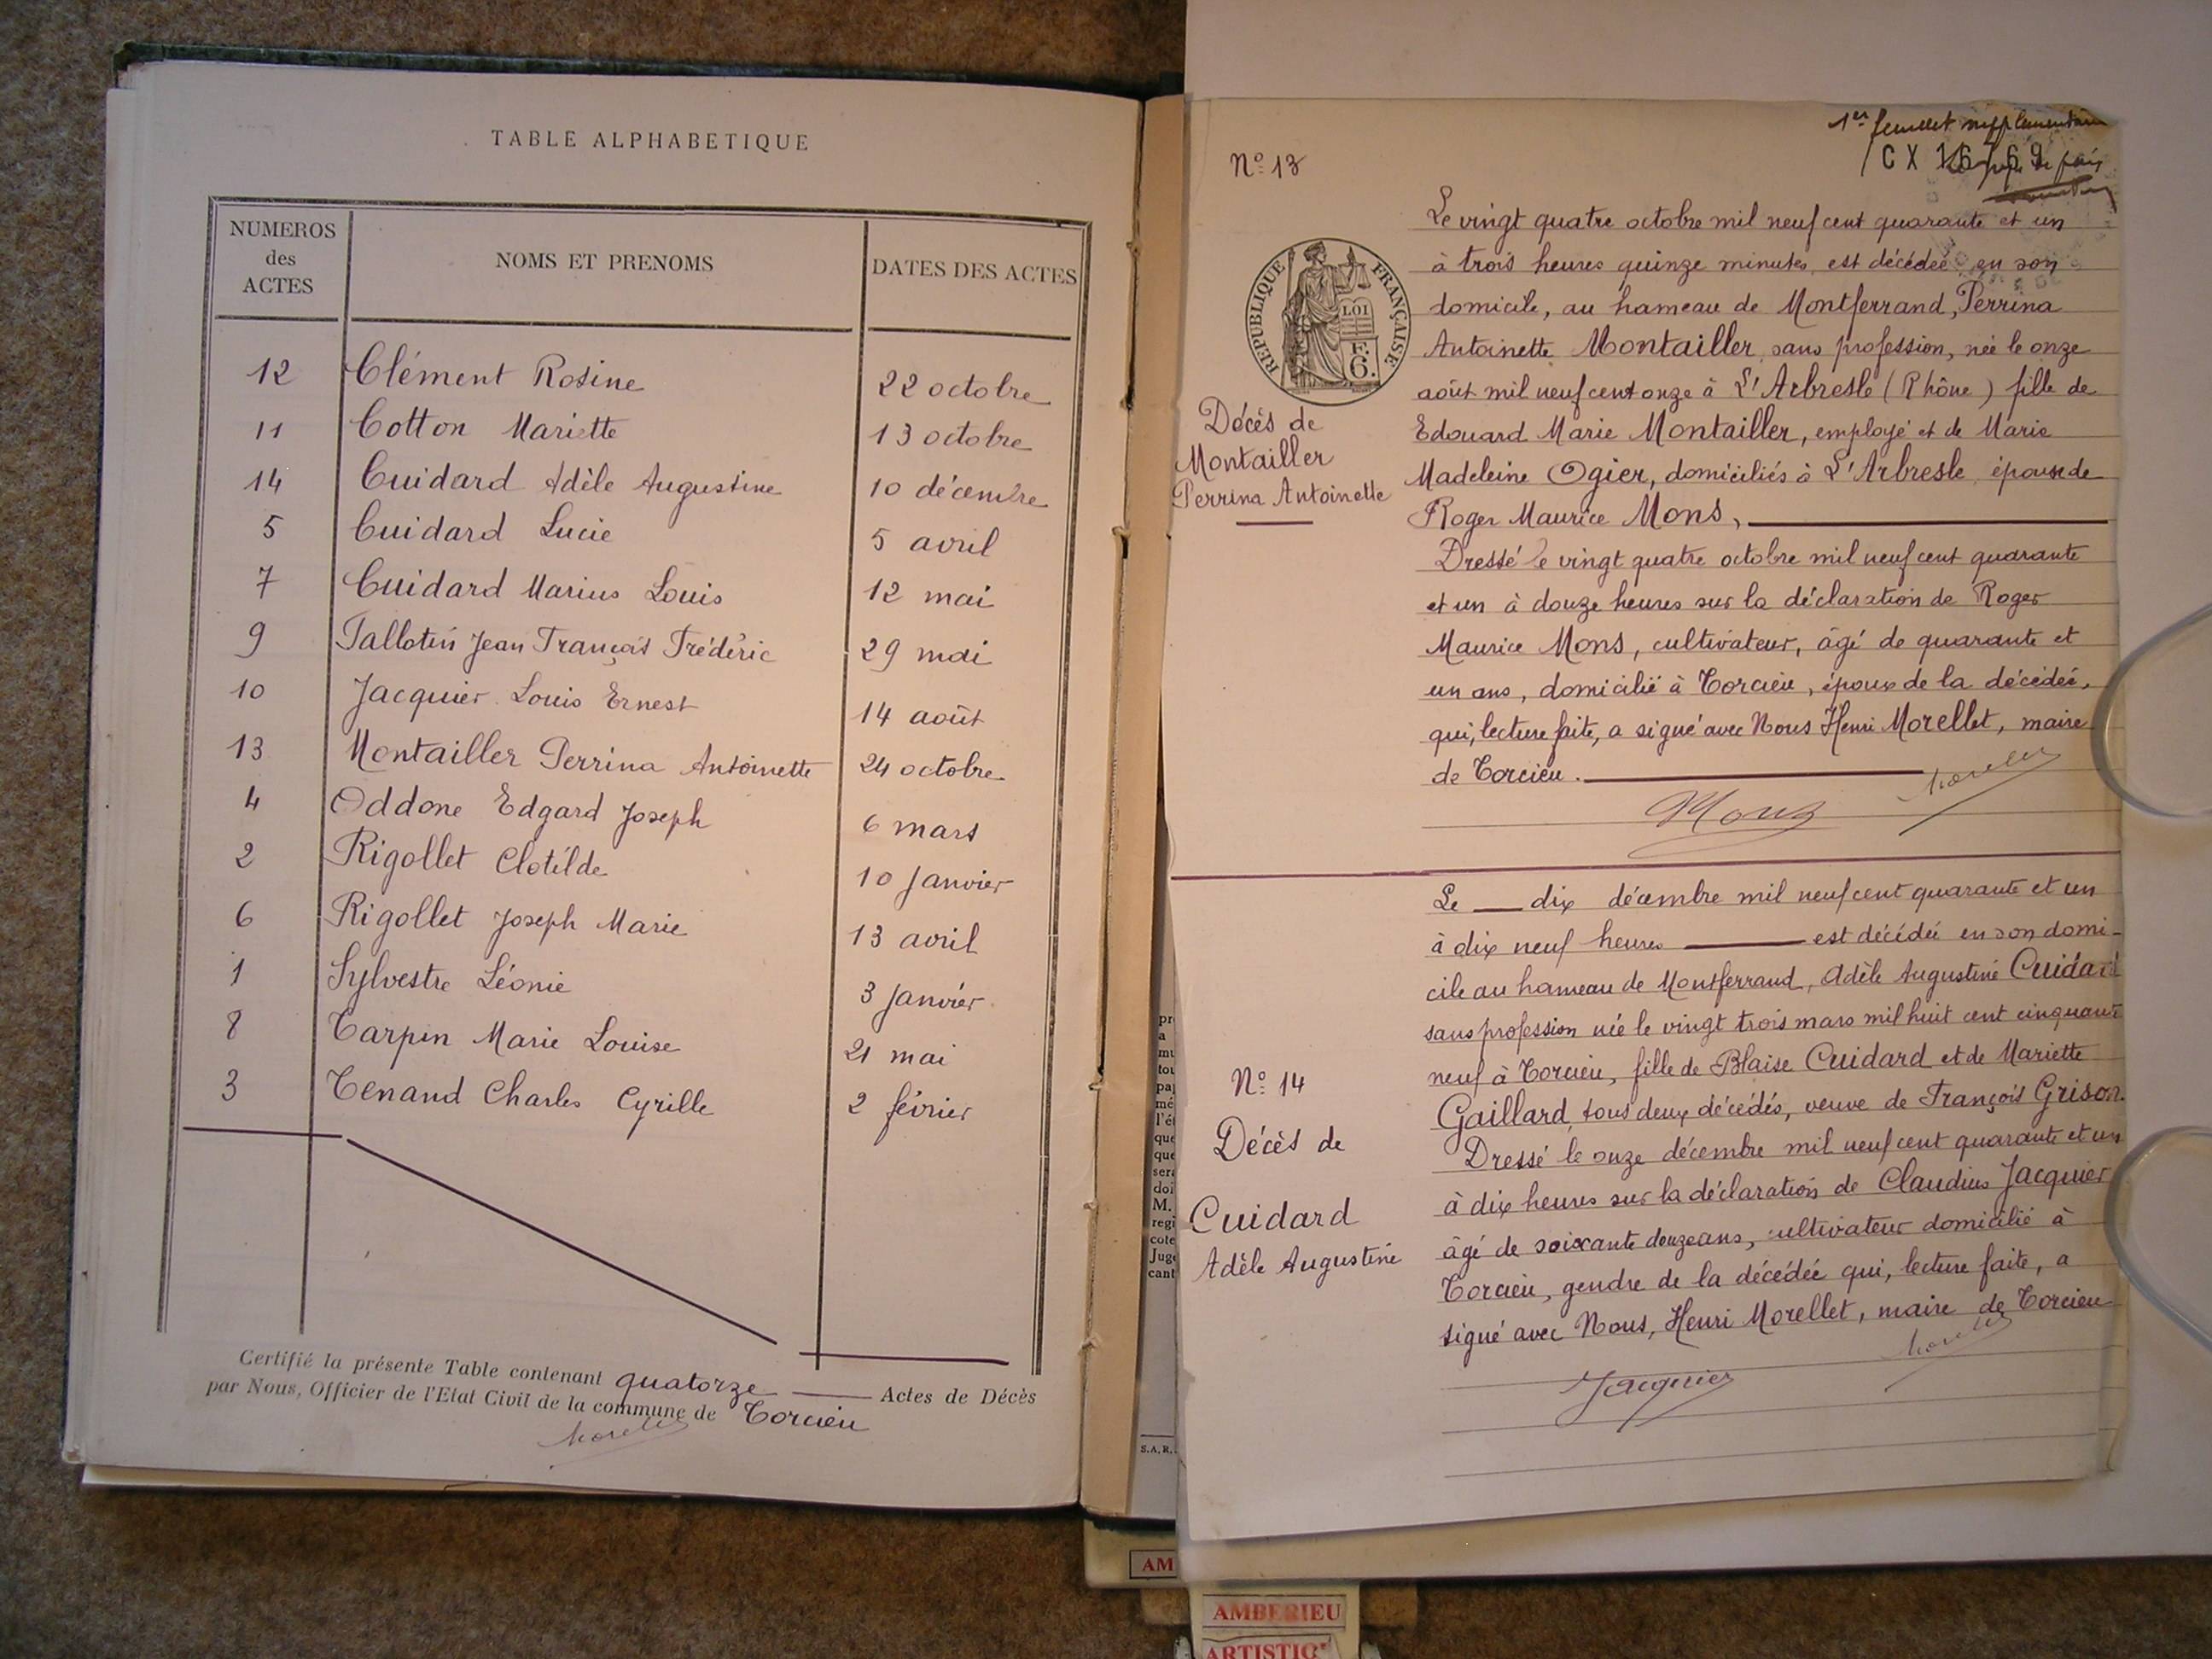 TABLE ALPHABETIQUE
NUMEROS des ACTES NOMS ET PRENOMS DATES DES ACTES
12 Clément Rosine 22 octobre
11 Cotton Mariette 13 octobre
14 Cuidard Adèle Augustine 10 décembre
5 Cuidard Lucie 5 avril
7 Cuidard Marius Louis 12 mai
9 Jean François Frédéric 29 mai
10 Jacquier Louis Ernest 14 août
13 Montailler Perrina Antoinette 24 octobre
4 Oddone Edgard Joseph 6 mars
2 Rigollet Clotilde 10 Janvier
6 Rigollet Joseph Marie 13 avril
1 Sylvestre Léonie 3 Janvier
8 Tarpin Marie Louise 21 mai
3 Tenand Charles Cyrille 2 février
Certifié la présente Table contenant quatorze Actes de Décès
par Nous, Officier de l'Etat Civil de la commune de Torcieu
Morellet
1er feuillet supplémentaire
N° 13
Le vingt quatre octobre mil neuf cent quarante et un
à trois heures quinze minutes est décédée en son
domicile, au hameau de Montferrand, Perrina
Antoinette Montailler sans profession, née le onze
août mil neuf cent onze à L'Arbresle (Rhône) fille de
Edouard Marie Montailler, employé et de Marie
Madeleine Ogier, domiciliés à L'Arbresle, épouse de
Roger Maurice Mons,
Dressé le vingt quatre octobre mil neuf cent quarante
et un à douze heures sur la déclaration de Roger
Maurice Mons, cultivateur, âgé de quarante et
un ans, domicilié à Torcieu, époux de la décédée,
qui, lecture faite, a signé avec Nous Henri Morellet, maire
de Torcieu.
Mons Morellet
REPUBLIQUE FRANÇAISE
LOI
F.
6.
Décès de
Montailler
Perrina Antoinette
Le dix décembre mil neuf cent quarante et un
à dix neuf heures est décédée en son domi-
cile au hameau de Montferrand, Adèle Augustine Cuidard
sans profession née le vingt trois mars mil huit cent cinquante
neuf à Torcieu, fille de Blaise Cuidard et de Mariette
Gaillard, tous deux décédés, veuve de François Grison.
Dressé le onze décembre mil neuf cent quarante et un
à dix heures sur la déclaration de Claudius Jacquier
âgé de soixante douze ans, cultivateur domicilié à
Torcieu, gendre de la décédée qui, lecture faite, a
signé avec Nous, Henri Morellet, maire de Torcieu
Jacquier Morellet
N° 14
Décès de
Cuidard
Adèle Augustine
S.A.R.
AM
AMBERIEU